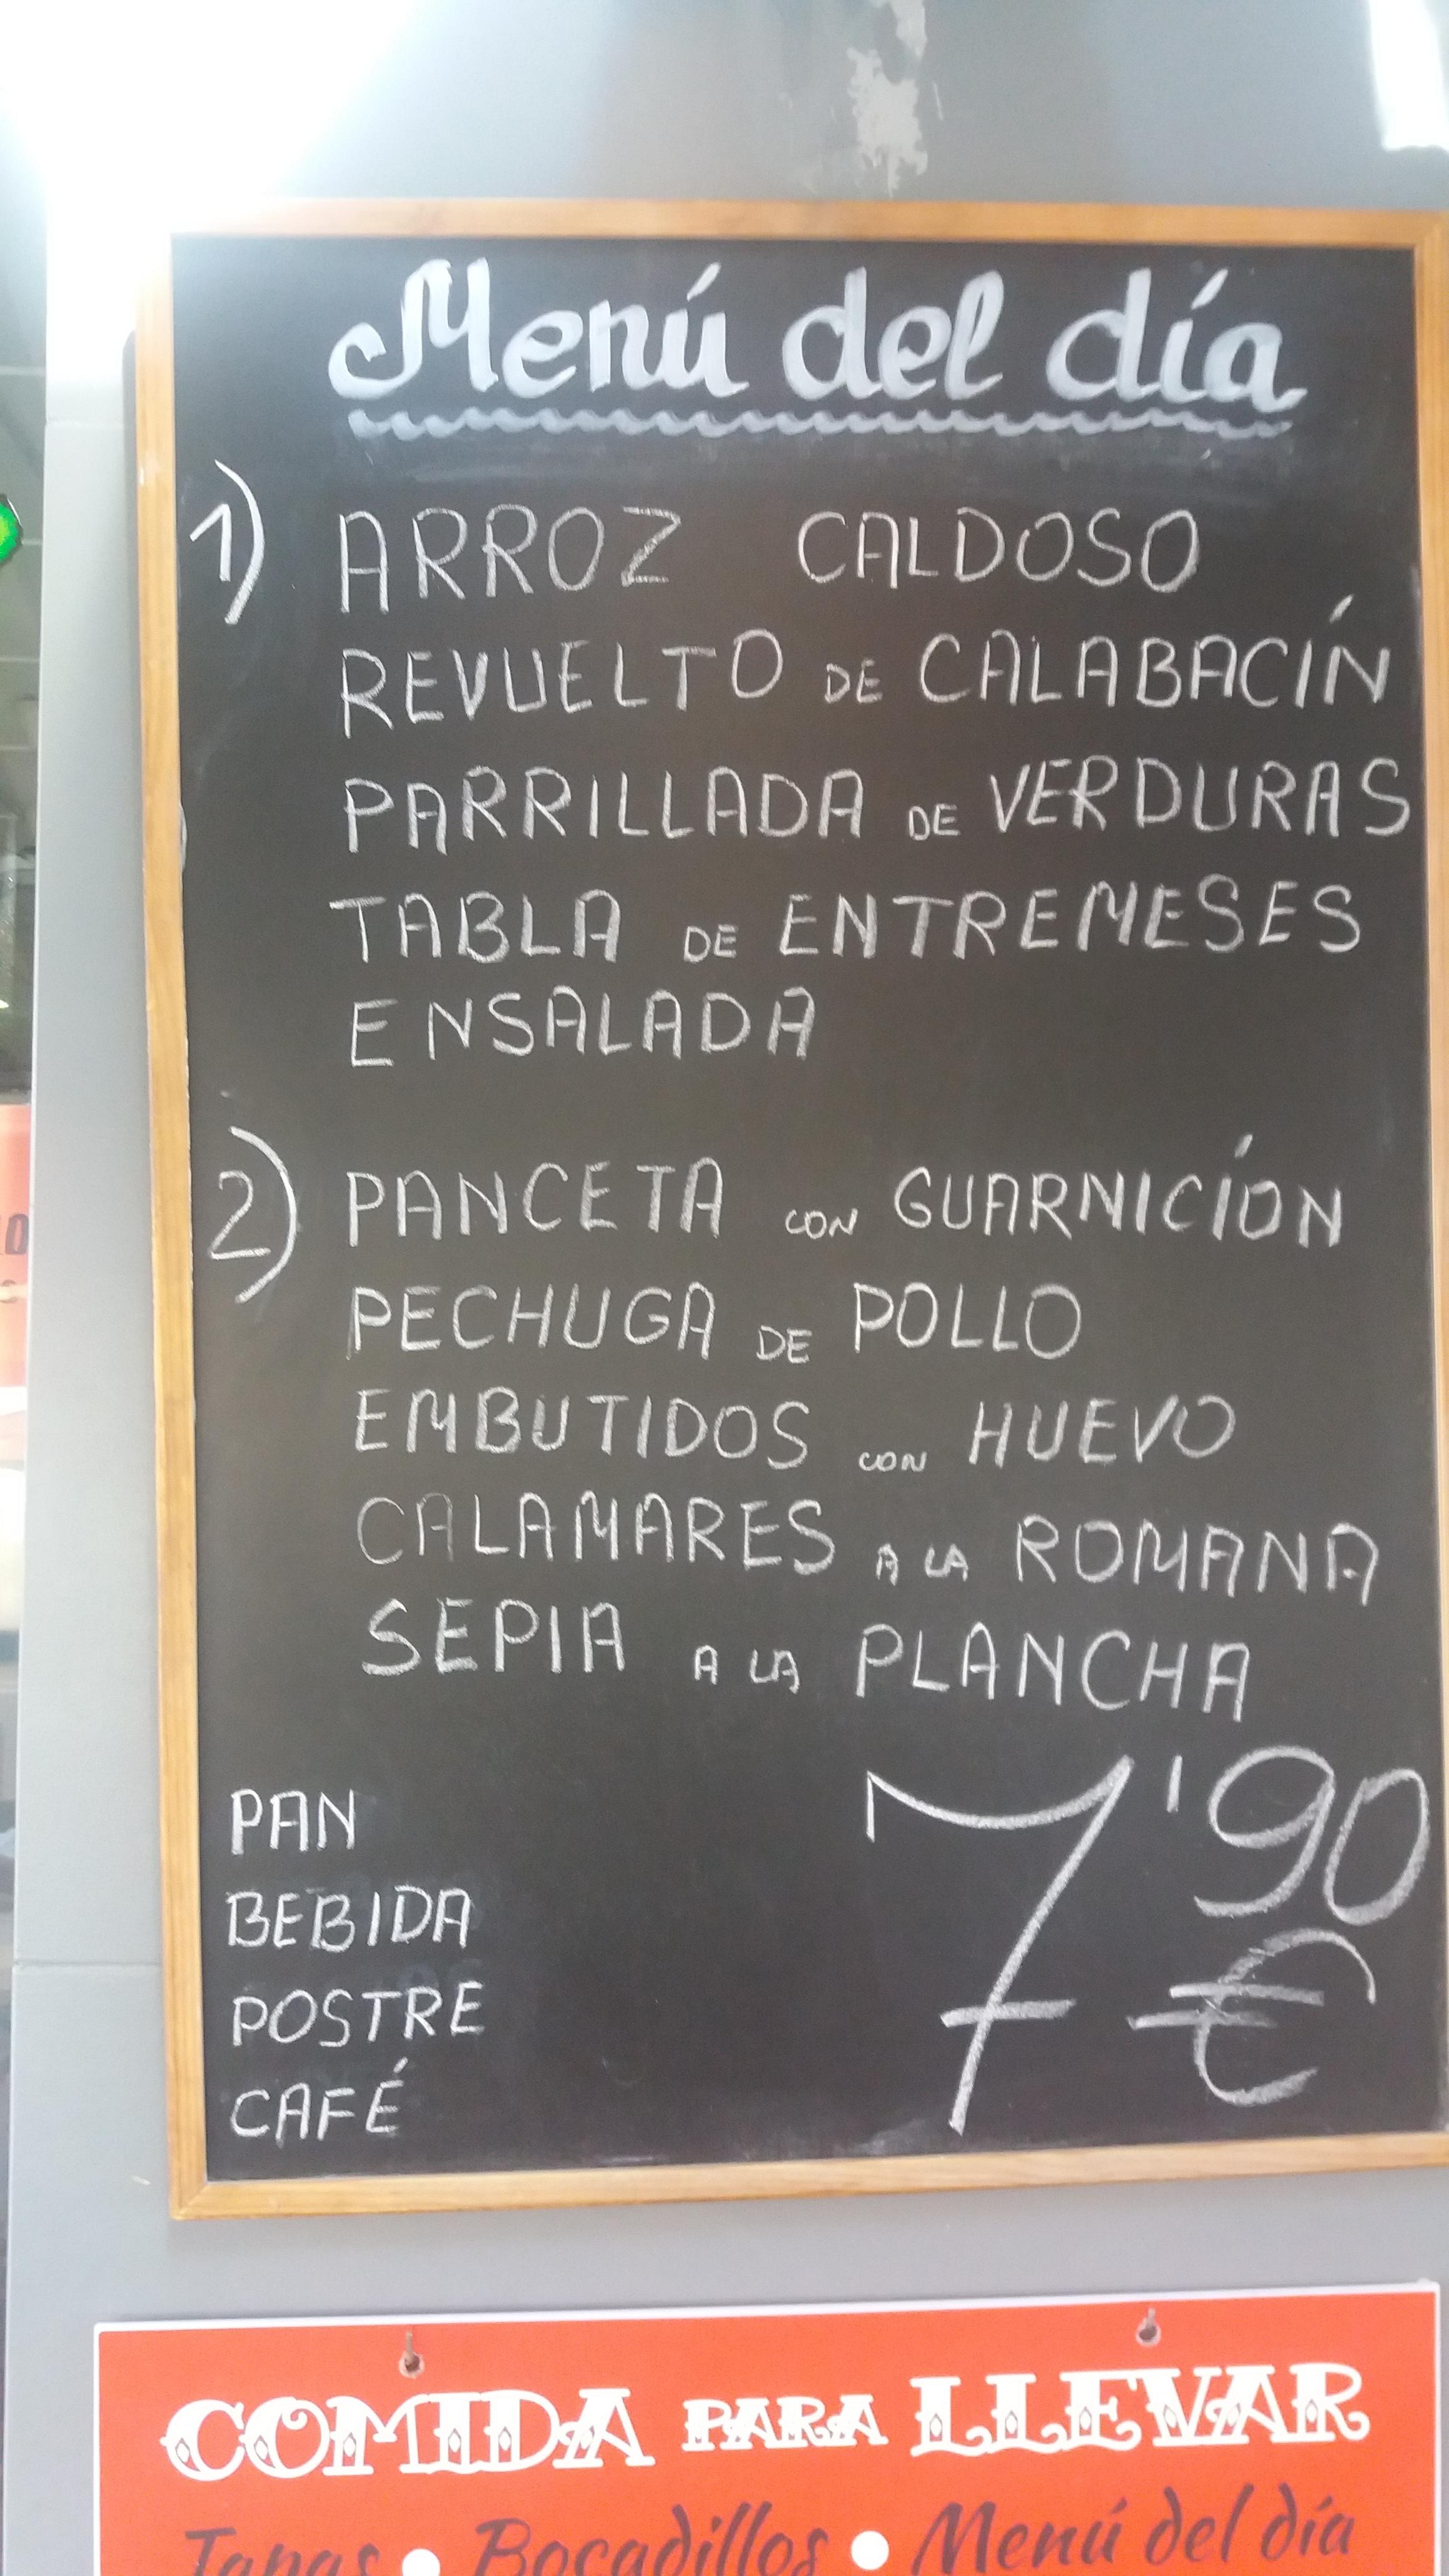 Menú del día
1) ARROZ CALDOSO
REVUELTO DE CALABACÍN
PARRILLADA DE VERDURAS
TABLA DE ENTREMESES
ENSALADA
2) PANCETA CON GUARNICIÓN
PECHUGA DE POLLO
EMBUTIDOS CON HUEVO
CALAMARES A LA ROMANA
SEPIA A LA PLANCHA
PAN
BEBIDA
POSTRE
CAFÉ
7'90
€
COMIDA PARA LLEVAR
Tapas • Bocadillos • Menú del día